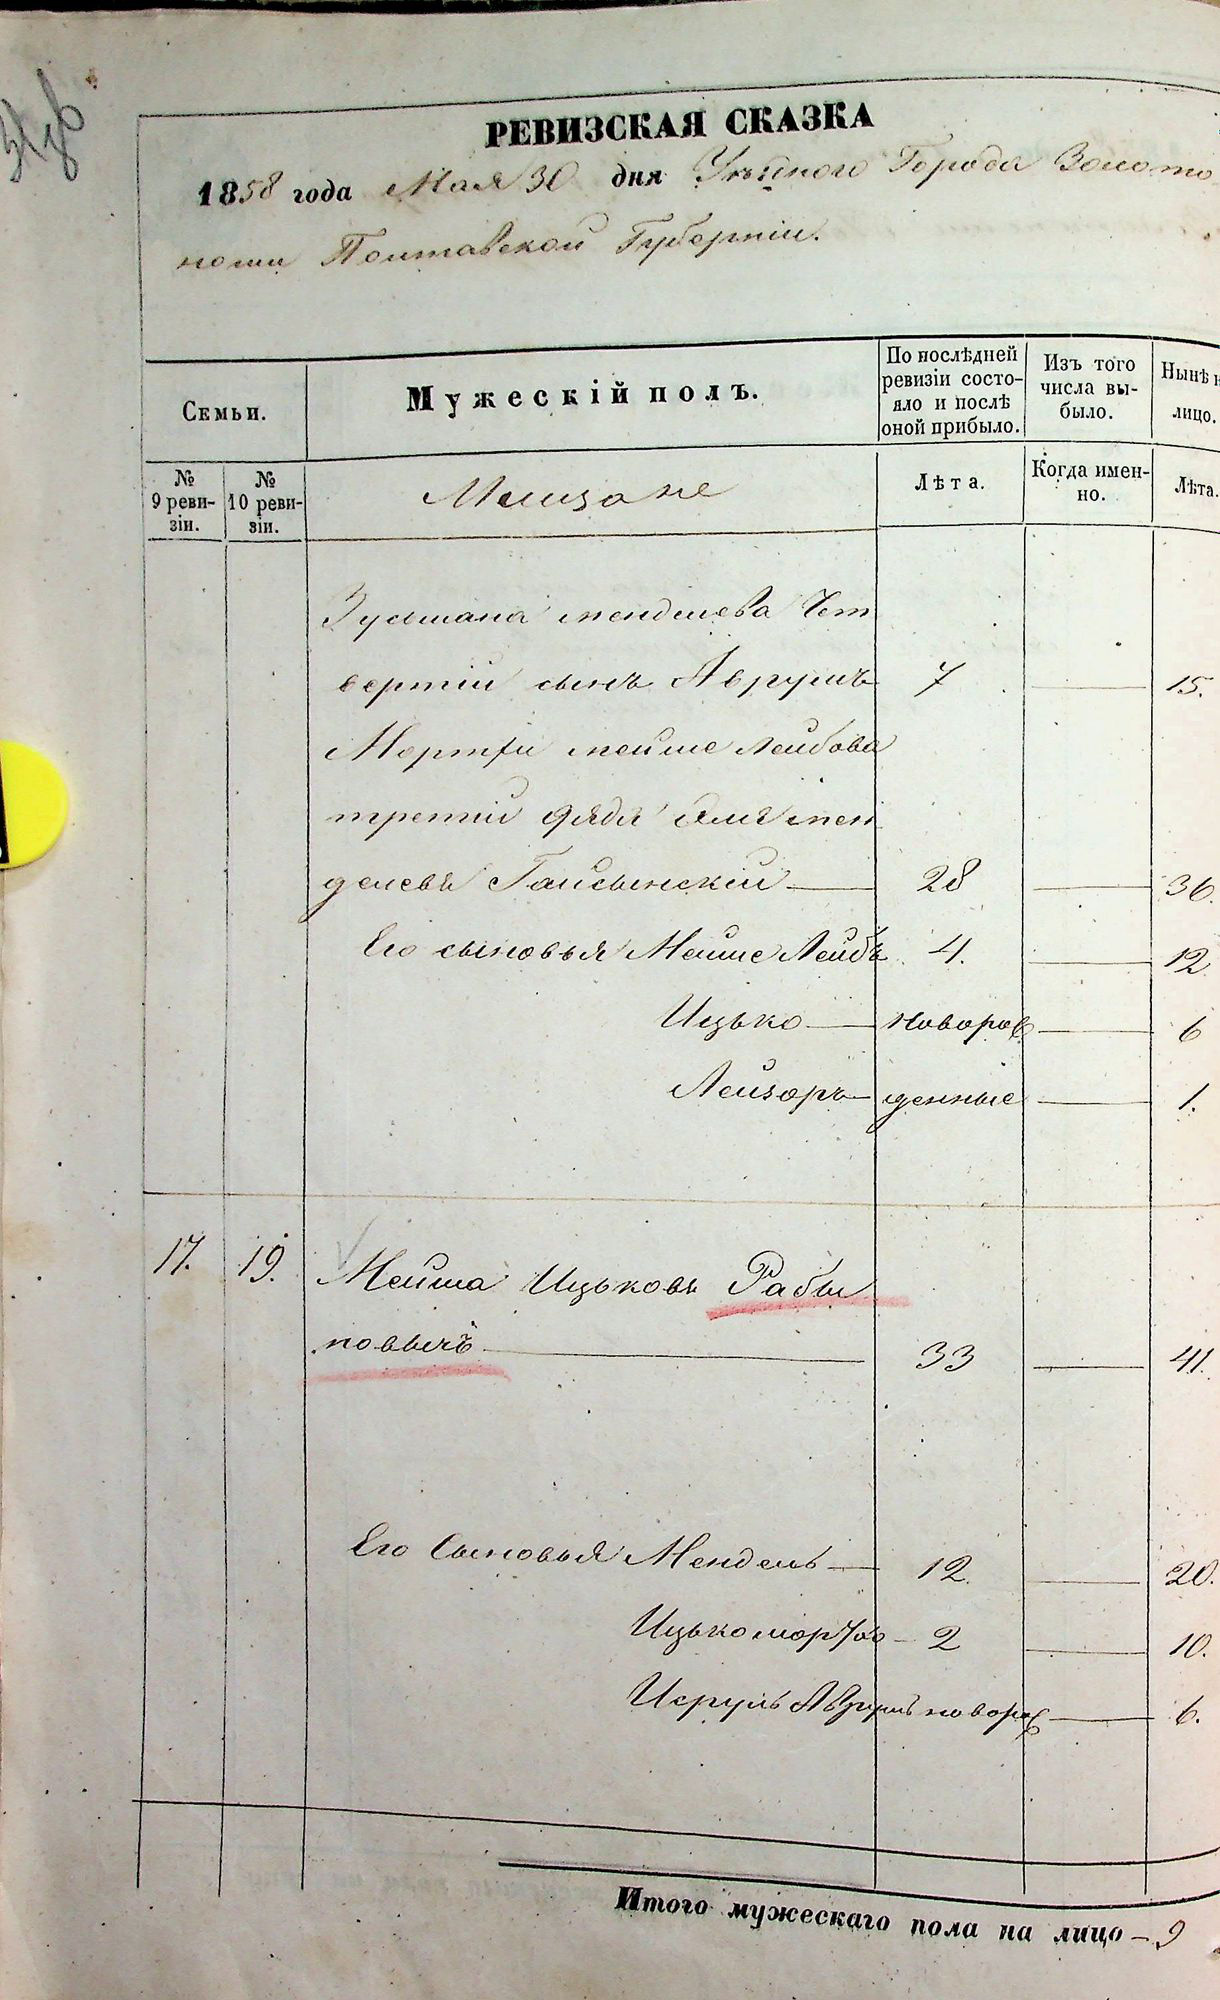 РЕВИЗСКАЯ СКАЗКА
1858 года Мая 30 дня Уѣзднаго Города Золото
ноши Полтавской Губерніи.
Семьи.
Мужескій полъ.
По послѣдней ревизіи состо-
яло и послѣ оной прибыло.
Изъ того числа вы-
было.
Нынѣ н
лицо.
№ 9 реви-
зіи.
№ 10 реви-
зіи.
Мещане
Лѣта.
Когда имен-
но.
Лѣта.
Зусьмана Менделева Чет
вертій сынъ Аврумъ 7 15.
Мортхи Мейше Лейбова
третій дядя Меn
делевъ Гайсынскій 28 36.
Его сыновья Мейше Лейбъ 4. 12
Ицько новорож 6
Лейзоръ денные 1.
17. 19. Мейша Ицьковъ Рабы
новычъ 33 41.
Его Сыновья Мендель 12. 20.
Ицько Мортхо 2 10.
Исруль Аврумъ новорож 6.
Итого мужескаго пола на лицо - 9